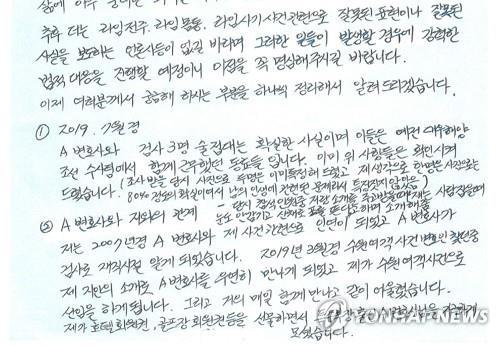 추후 다른 라임전주, 라임몸통, 라임사기사건관련으로 잘못된 표현이나 잘못된
사실을 보도하는 언론사등이 없길 바라며 그러한 일들이 발생할 경우에 강력한
법적 대응을 진행할 예정이니 이점을 꼭 명심해주시길 바랍니다.
이제 여러분께서 궁금해 하시는 부분을 하나씩 정리해서 알려드리겠습니다.
① 2019. 7월경
A 변호사와 검사 3명 술접대는 확실한 사실이며 이들은 예전 대우해양
조선 수사팀에서 함께 근무했던 동료들 입니다. 이미 위 사람들은 확인시켜
드렸습니다. (조사받을 당시 사진으로 두명은 이미특정해 드렸고 제생각으로 한명은 사진으로
80%정도의 확실이여서 남의 인생에 관련된 문제라서 특정짓지 않았음)
② A 변호사와 저와의 관계 - 당시
저는 2007년경 A 변호사와 제 사건관련으로 인연이 되었고 A변호사가
검사로 재직시절 알게 되었습니다. 2019년 3월경 수원여객사건 변호인 찾던중
제 지인의 소개로 A변호사를 우연히 만나게 되었고 제가 수원여객사건으로
선임을 하게 됩니다. 그리고 거의 매일 함께 만나고 같이 어울렸습니다.
제가 호텔회원권, 골프장 회원권등을 선물하면서
못했습니다.
YONHAPNEWS